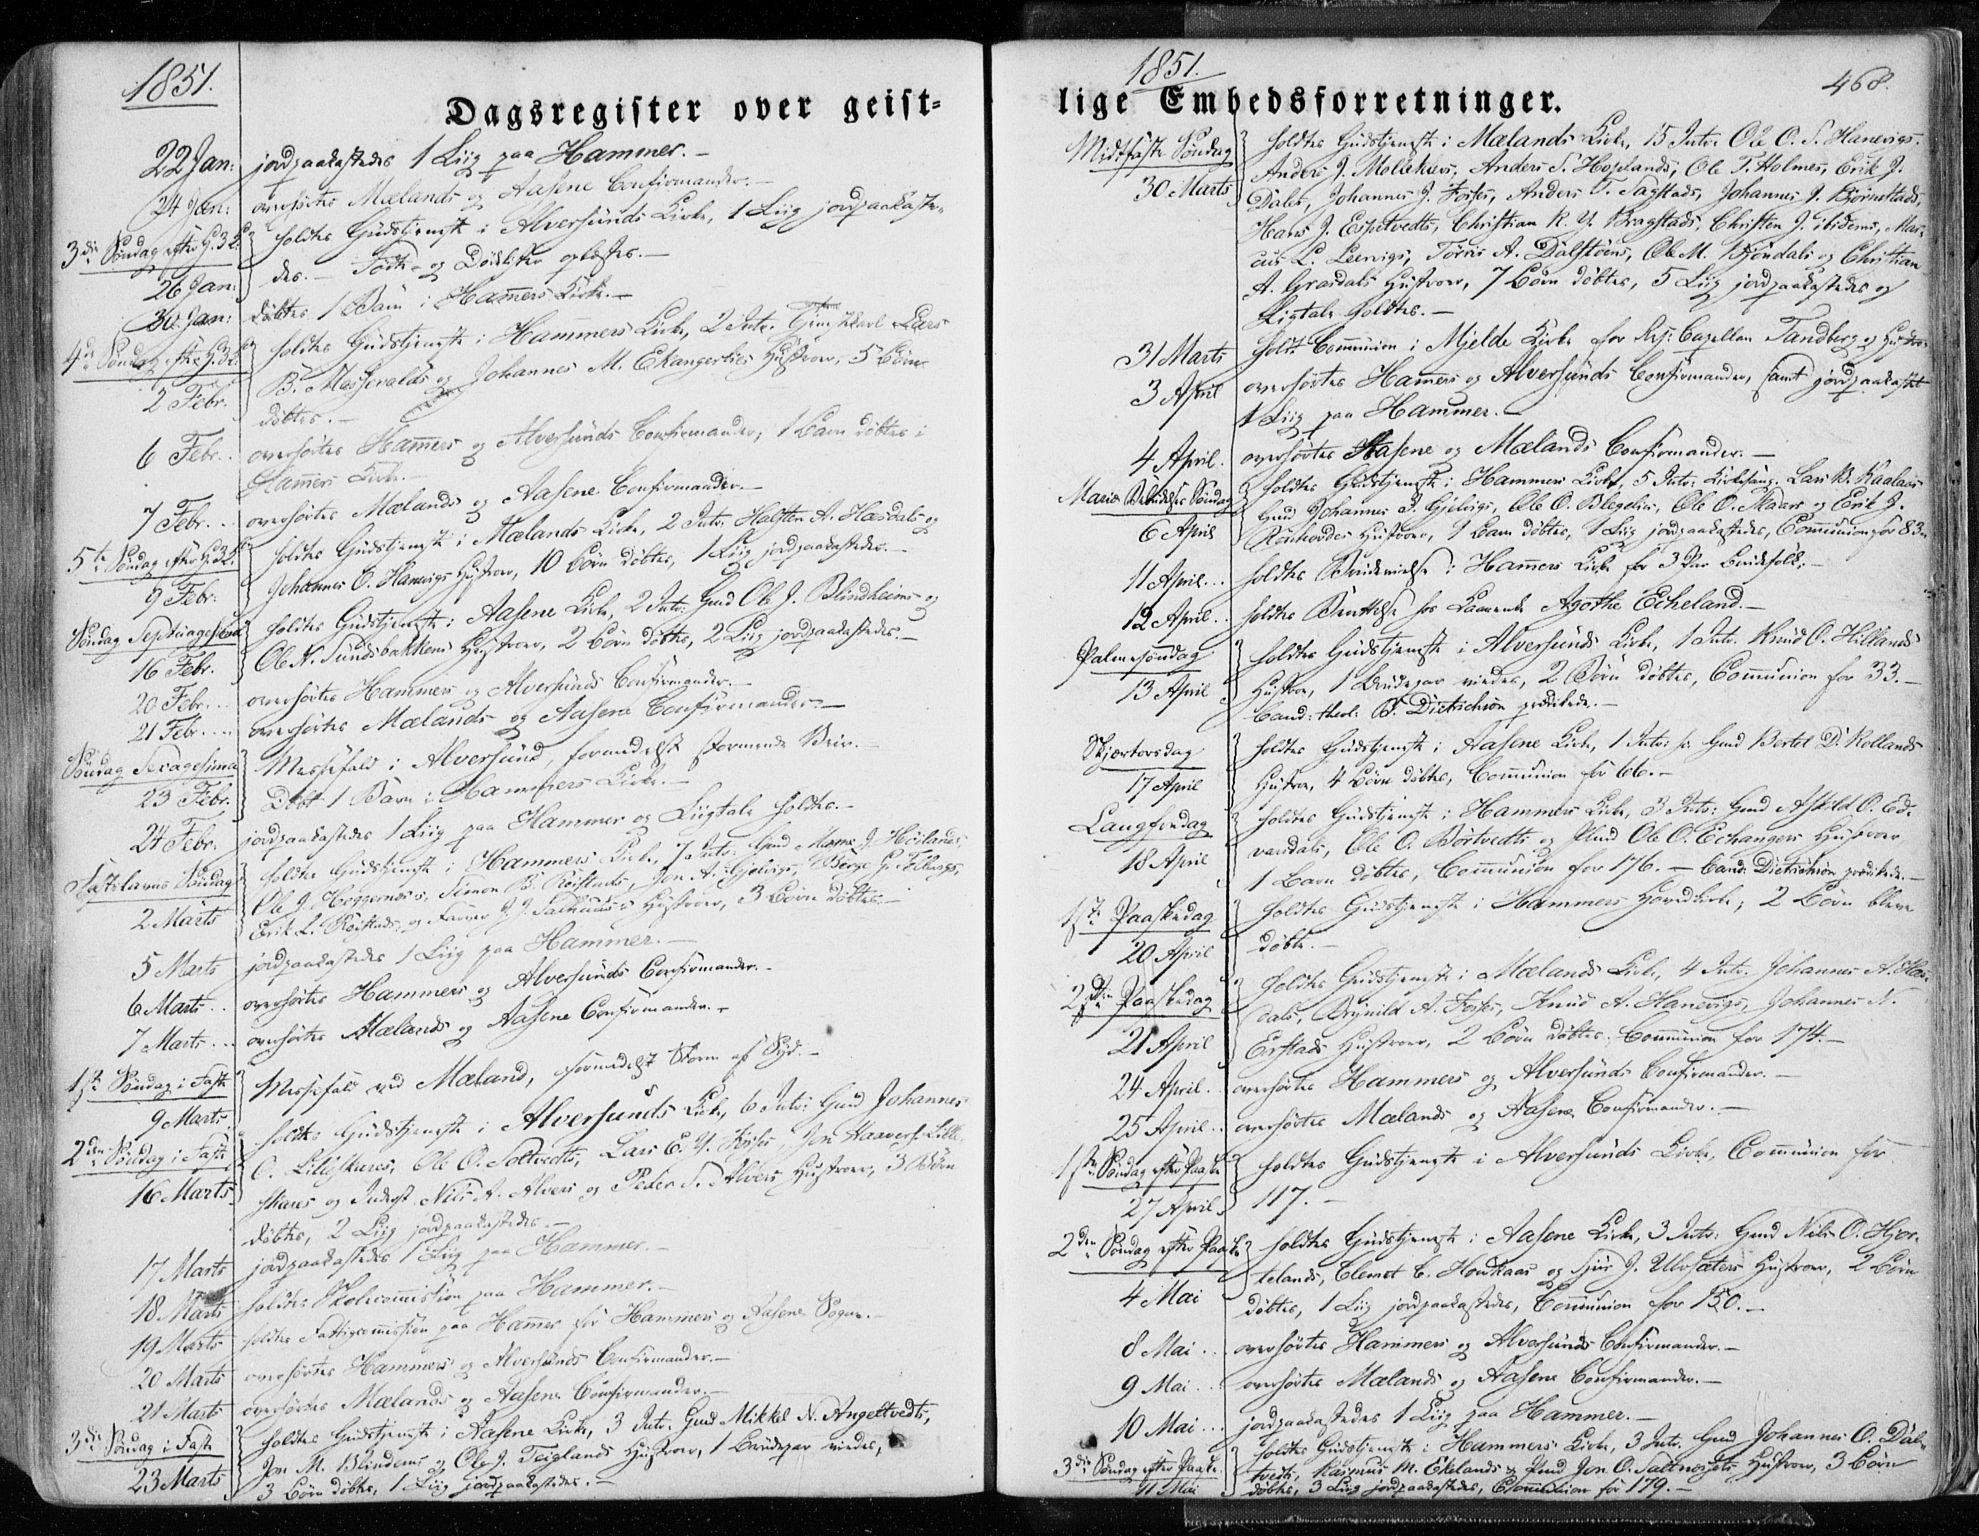 1851.
Dagsregister over geist=
22 Jan: jordpaakastedes 1 Liig paa Hammer. –
24 Jan: overhørtes Mælands og Aasene Confirmander. –
3die Søndag efter H. 3 K. holdtes Gudstjeneste i Alversunds Kirke, 1 Liig jordpaakaste-
26 Jan: des. – Føde- og Dødslister oplæstes. –
30 Jan: døbtes 1 Barn i Hammers Kirke. –
4de Søndag efter H. 3 K. holdtes Gudstjeneste i Hammers Kirke, 2 Intr. Lars
2 Febr. B. og Johannes M. Hustruer, 5 Børn
døbtes. –
6 Febr. overhørtes Hammers og Alversunds Confirmander, 1 Barn døbtes i
Hammers Kirke. –
7 Febr. . . overhørtes Mælands og Aasene Confirmander. –
5te Søndag efter H. 3 K. holdtes Gudstjeneste i Mælands Kirke, 2 Intr. Halsten A. Hæsdals og
9 Febr. Johannes O. Hanevigs Hustruer, 10 Børn døbtes, 1 Liig jordpaakastedes. –
Søndag Septuagesima holdtes Gudstjeneste i Aasene Kirke, 2 Intr. Gmd Ole J. Blindheims og
16 Febr. Ole N. Sundsbakkens Hustruer, 2 Børn døbtes, 2 Liig jordpaakastedes. –
20 Febr. . . overhørtes Hammers og Alversunds Confirmander. –
21 Febr. . . overhørtes Mælands og Aasene Confirmander. –
Søndag Sexagesima Messefald i Alversund, formedelst stormende Veir. –
23 Febr. Døbt 1 Barn i Hammers Kirke. –
24 Febr. jordpaakastedes 1 Liig paa Hammer og Liigtale holdtes. –
Fastelavns Søndag holdtes Gudstjeneste i Hammers Kirke, 7 Intr. Gmd Mons J. Høilands,
2 Marts Ole J. Simon B. Røistads, Jon A. Gjelvigs, Børge G.
Erik L. Røistads, og J. J. Hustruer, 3 Børn døbtes. –
5 Marts jordpaakastedes 1 Liig paa Hammer. –
6 Marts . . overhørtes Hammers og Alversunds Confirmander. –
7 Marts . . overhørtes Mælands og Aasene Confirmander. –
1ste Søndag i Faste Messefald ved Mæland, formedelst Storm af Syd. –
9 Marts
2den Søndag i Faste holdtes Gudstjeneste i Alversunds Kirke, 6 Intr. Gmd Johannes
16 Marts O. Ole O. Toltvedts, Lars E. Y. Fosses, Jon Lille-
skares og Nils A. Alvers og Peder S. Alvers Hustruer, 3 Børn
døbtes, 2 Liig jordpaakastedes. –
17 Marts jordpaakastedes 1 Liig paa Hammer. –
18 Marts holdtes Skolecommission paa Hammer. –
19 Marts holdtes Fattigcommission paa Hammer for Hammers og Aasene Sogne. –
20 Marts overhørtes Hammers og Alversunds Confirmander. –
21 Marts overhørtes Mælands og Aasene Confirmander. –
3die Søndag i Faste holdtes Gudstjeneste i Aasene Kirke, 3 Intr. Gmd Mikkel N. Angeltvedts,
23 Marts Jon M. Blindems og Ole J. Teiglands Hustruer, 1 Brudepar viedes,
3 Børn døbtes, 1 Liig jordpaakastedes. –
1851.
468.
lige Embedsforretninger.
Midtfaste Søndag holdtes Gudstjeneste i Mælands Kirke, 15 Intr. Ole O. S. Hanevigs,
30 Marts Anders J. Molvikens, Anders S. Hoplands, Ole T. Holmes, Erik J.
Dales, Johannes J. Fosses, Anders T. Tagstads, Johannes J. Bjørnstads,
Hans J. Espetvedts, Christian R. Y. Bragstads, Christen J. ibidems, Mar-
cus L. Leervigs, Tørris A. Ole M. Bjøndals og Christian
A. Græsdals Hustruer, 7 Børn døbtes, 5 Liig jordpaakastedes og
Ligtale holdtes. –
31 Marts holdt Communion i Mjelde Kirke for Capellan Tandberg og Hustru.
3 April overhørtes Hammers og Alversunds Confirmander, samt jordpaakastet
1 Liig paa Hammer. –
4 April. overhørtes Aasene og Mælands Confirmander. –
Mariæ Søndag holdtes Gudstjeneste i Hammers Kirke, 5 Intr. Kirkesang. Lars B.
6 April Gmd Johannes P. Gjelvigs, Ole O. Ole O. Skaars og Erik J.
Hustruer, 1 Barn døbtes, 1 Liig jordpaakastedes, Communion for 83. –
11 April . . holdtes Brudevielse i Hammers Kirke for 3 Par Brudefolk. –
12 April . . holdtes hos Agothe Echeland. –
Palmesøndag holdtes Gudstjeneste i Alversunds Kirke, 1 Intr. Knud O. Hillands
13 April Hustrue, 1 Brudepar viedes, 2 Børn døbtes, Communion for 33. –
Cand: theol: B. Dietrichson prædikede. –
Skjærtorsdag holdtes Gudstjeneste i Aasene Kirke, 1 Intr. Gmd Bertel D. Rollands
17 April Hustrue, 4 Børn døbtes, Communion for 66. –
Langfredag holdtes Gudstjeneste i Hammers Kirke, 3 Intr. Gmd Askild O. Ed-
18 April vardals, Ole O. Børtvedts og Ole O. Echangers Hustruer
1 Barn døbtes, Communion for 176. – Cand: Dietrichson prædikede. –
1ste Paaskedag holdtes Gudstjeneste i Hammers Hovedkirke, 2 Børn bleve
20 April døbte. –
2den Paaskedag holdtes Gudstjeneste i Mælands Kirke, 4 Intr. Johannes A. Hæs-
21 April dals, Brynild A. Fosses, Knud A. Hanevigs, Johannes N.
Eirstads Hustruer, 2 Børn døbtes, Communion for 174. –
24 April. overhørtes Hammers og Alversunds Confirmander. –
25 April . . overhørtes Mælands og Aasene Confirmander. –
1ste Søndag efter Paaske holdtes Gudstjeneste i Alversunds Kirke, Communion for
27 April. 117. –
2den Søndag efter Paaske holdtes Gudstjeneste i Aasene Kirke, 3 Intr. Gmd Nils O. Hjor-
4 Mai telands, Clemet C. og Sjur J. Ulvsæters Hustruer, 2 Børn
døbtes, 1 Liig jordpaakastedes, Communion for 150. –
8 Mai . . overhørtes Hammers og Alversunds Confirmander. –
9 Mai . . overhørtes Mælands og Aasene Confirmander. –
10 Mai . . jordpaakastedes 1 Liig paa Hammer. –
3die Søndag efter Paaske holdtes Gudstjeneste i Hammers Kirke, 3 Intr. Gmd Johannes O. Dal-
11 Mai tvedts, Rasmus M. Ekelands og Jon O. Hustruer, 3 Børn
døbtes, 3 Liig jordpaakastedes, Communion for 179. –